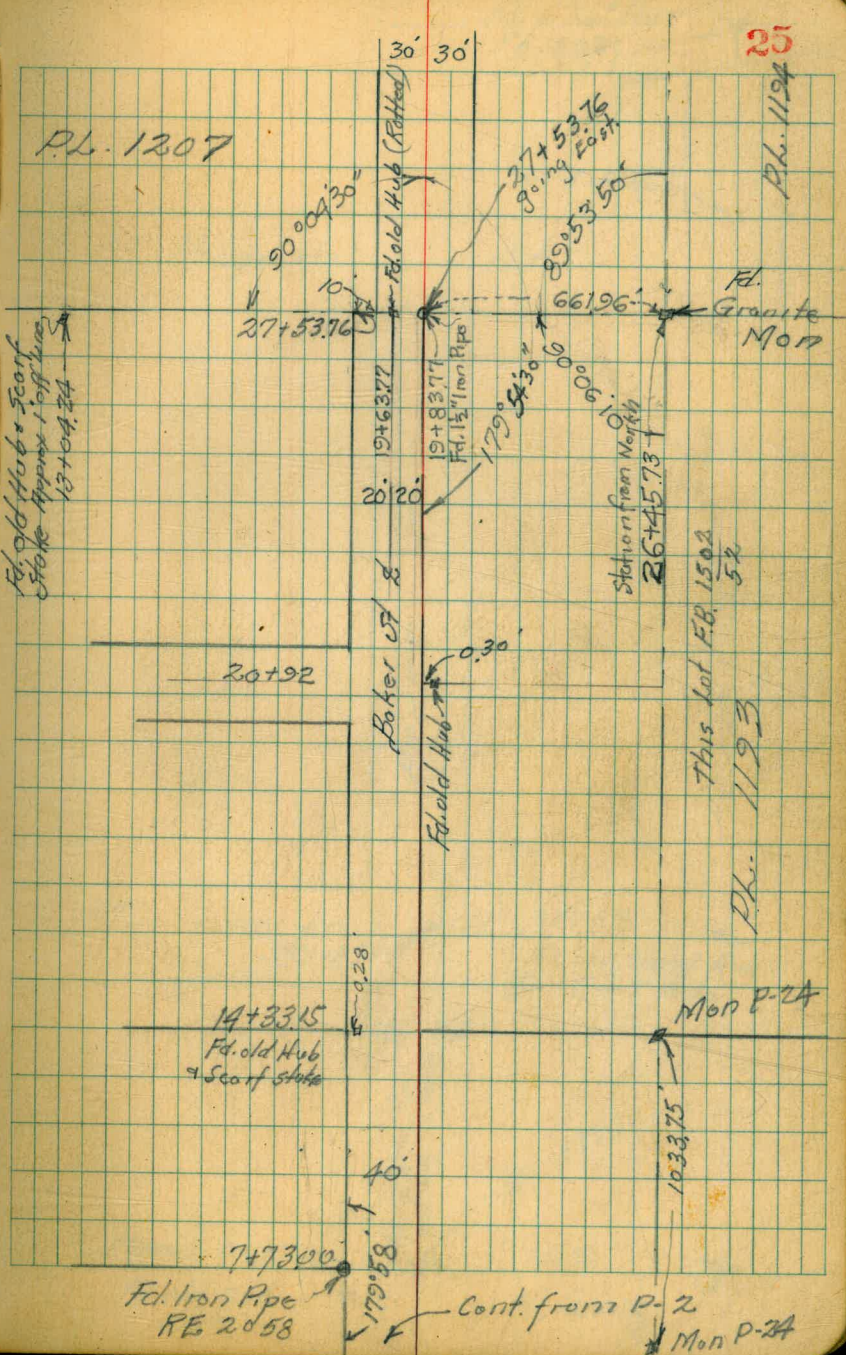 25
30' 30'
P.L. 1207
P.L. 1194
Fd. old Hub (Rotted)
27+53.76
going East.
90°04'30"
89°53'50"
10'
27+53.76
661.96'
Fd.
Granite
Mon
Fd. old Hub & Scarf
Stake Approx 1' off line
13+04.24
19+63.77
19+83.77
Fd. 1½" Iron Pipe
179° 54'30"
90° 06' 10"
Station from North
26+45.73
20' 20'
Baker St
This Lot F.B. 1502
52
20+92
0.30'
Fd. old Hub
P.L. 1193
0.28'
14+33.15
Fd. old Hub
& Scarf stake
Mon P-24
1033.75'
40'
7+73.00
179°58'
Fd. Iron Pipe
RE 2058
Cont. from P-2
Mon P-24